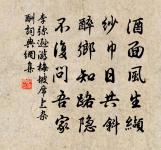 酒面風生纈
紗巾日共斜
醉鄉知路隐
不復問吾家
李弥遜游梅坡席上杂
酬詞典網集